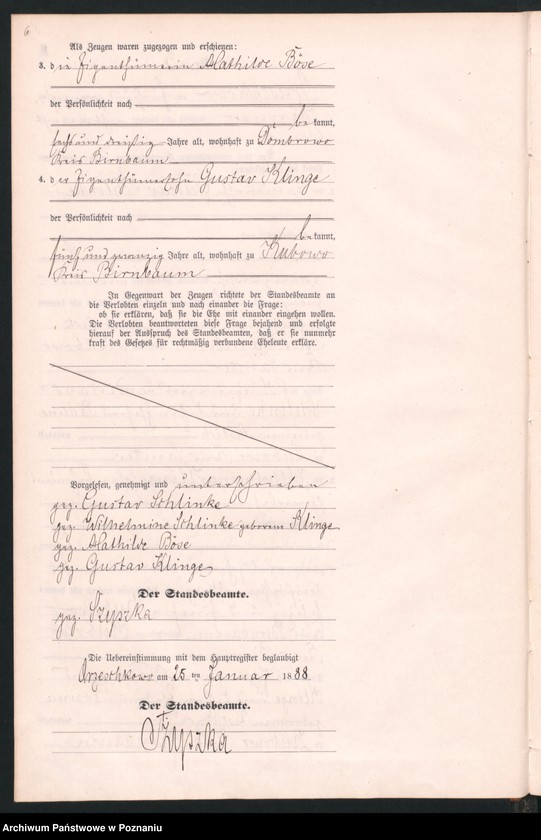 6
Als Zeugen waren zugezogen und erschienen:
3. die Eigenthümerin Mathilde Böse
der Persönlichkeit nach
bekannt,
sechs und dreißig Jahre alt, wohnhaft zu Dombrowo
Kreis Birnbaum
4. der Eigenthümersohn Gustav Klinge
der Persönlichkeit nach
bekannt,
fünf und zwanzig Jahre alt, wohnhaft zu Kubowo
Kreis Birnbaum
In Gegenwart der Zeugen richtete der Standesbeamte an
die Verlobten einzeln und nach einander die Frage:
ob sie erklären, daß sie die Ehe mit einander eingehen wollen.
Die Verlobten beantworteten diese Frage bejahend und erfolgte
hierauf der Ausspruch des Standesbeamten, daß er sie nunmehr
kraft des Gesetzes für rechtmäßig verbundene Eheleute erkläre.
Vorgelesen, genehmigt und unterschrieben
gez. Gustav Schlinke
gez. Wilhelmine Schlinke geborene Klinge
gez. Mathilde Böse
gez. Gustav Klinge
Der Standesbeamte.
gez. Szyszka
Die Uebereinstimmung mit dem Hauptregister beglaubigt
Orzeschkowo am 25 ten Januar 1888
Der Standesbeamte.
Szyszka
Archiwum Państwowe w Poznaniu